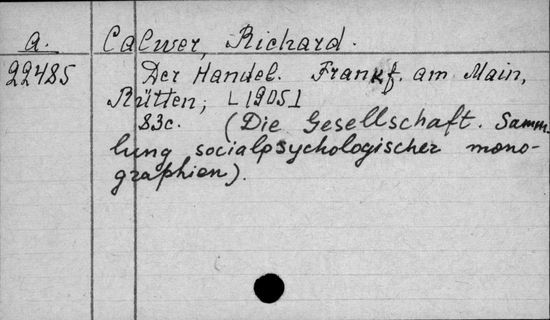 a. Calwer, Richard.
22485 Der Handel. Frankf. am Main,
Rütten, [1905]
83c. (Die Gesellschaft. Samm-
lung socialpsychologischer mono-
graphien).